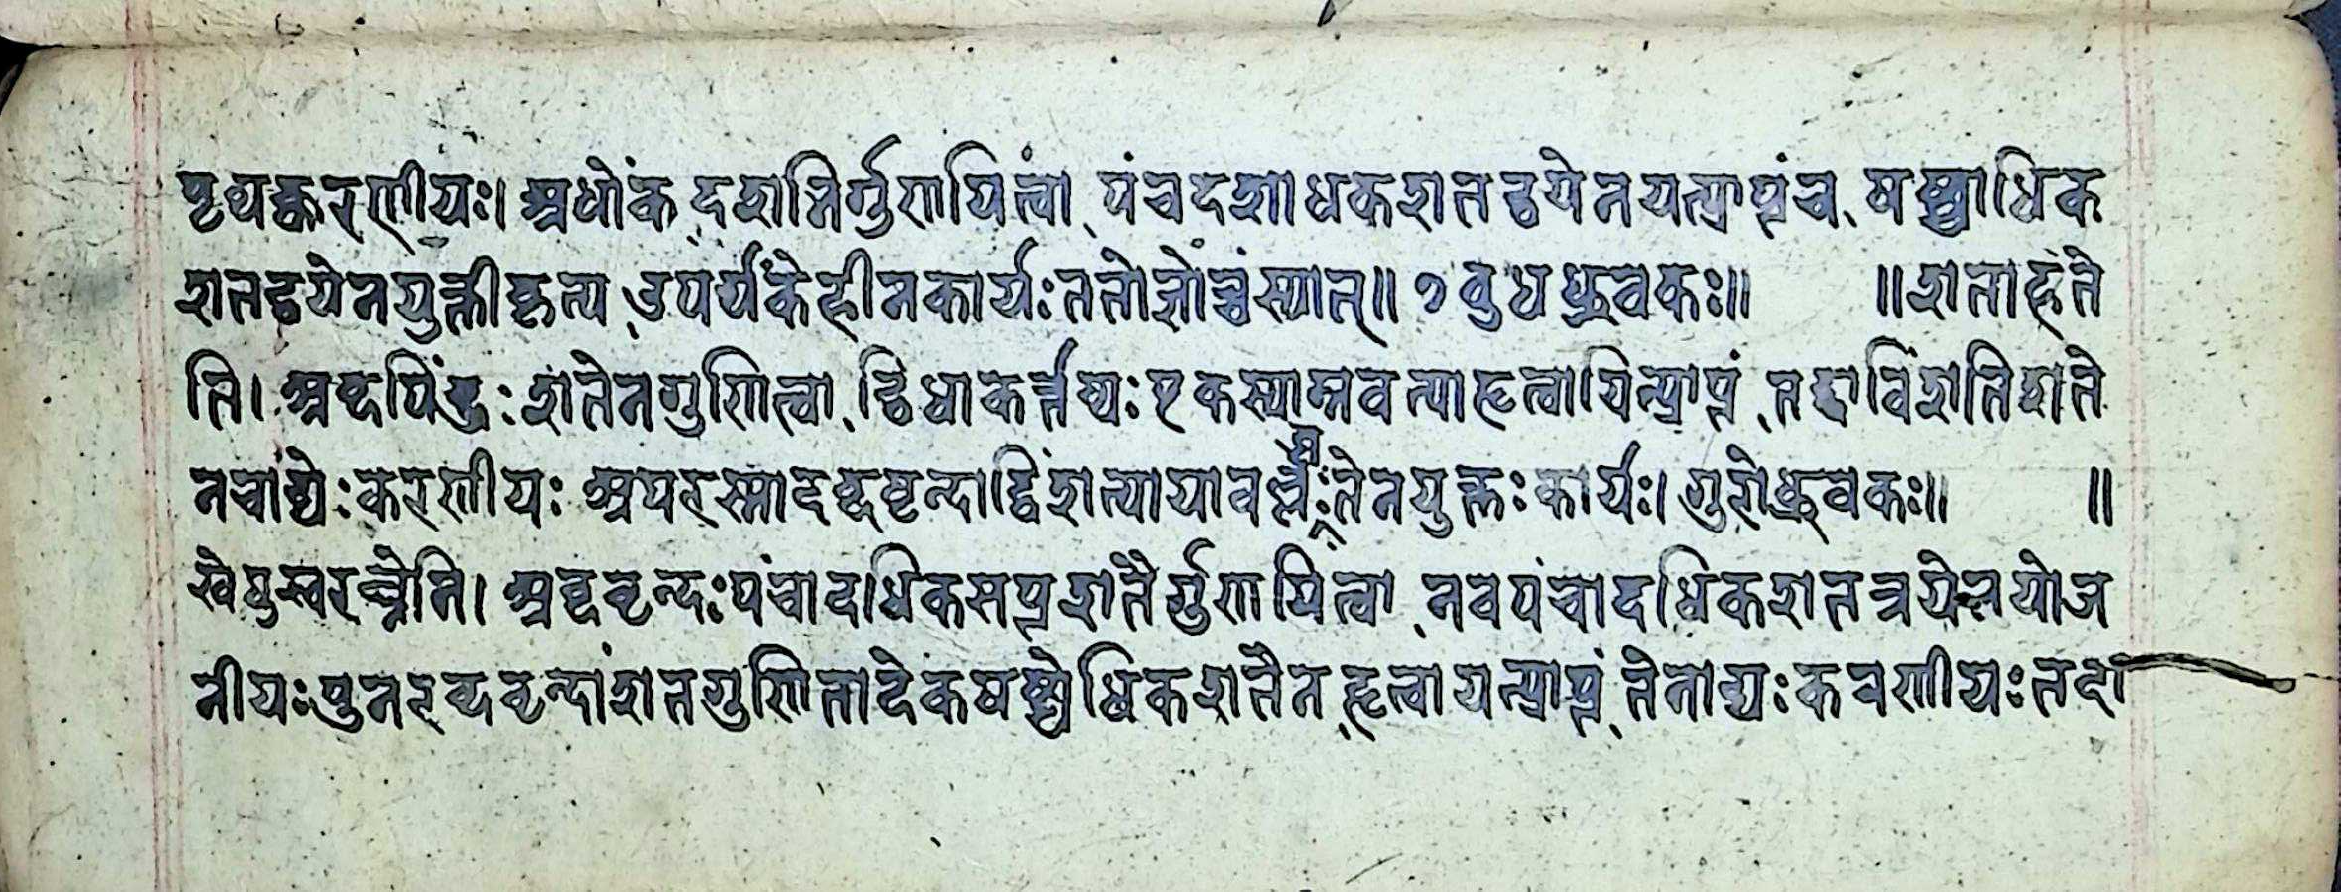 पृथक्करणीयः। अधोंक दशभिर्गुणायित्वा पंचदशाधकशतद्वयेनयत्प्राप्तंच षष्ट्याधिक
शतद्वयेनयुक्तीकृत्य उपर्यंकेहीनकार्यः ततोज्ञोच्चंस्यात्॥ ७ बुधध्रुवकः॥ ॥शताहते
ति। अब्दपिंडः शतेनगुणित्वा द्विधाकर्त्तव्यः एकस्यान्नवत्याहृत्वायित्प्राप्तं तद्वाविंशतिशते
नचाढ्यः करणीयः अपरस्मादब्दवृन्दाद्विंशत्यायावल्लब्धंतेनयुक्तः कार्यः। गुरोध्रुवकः॥ ॥
खेषुस्वरघ्नेति। अब्दवृन्दः पंचादधिकसप्तशतैर्गुणायित्वा नवपंचादधिकशतत्रयेनयोज
नीयः पुनरब्दवृन्दांशतगुणितादेकषष्ट्येधिकशतैन हृत्वायत्प्राप्तं तेनाढ्यः करणीयः तदा